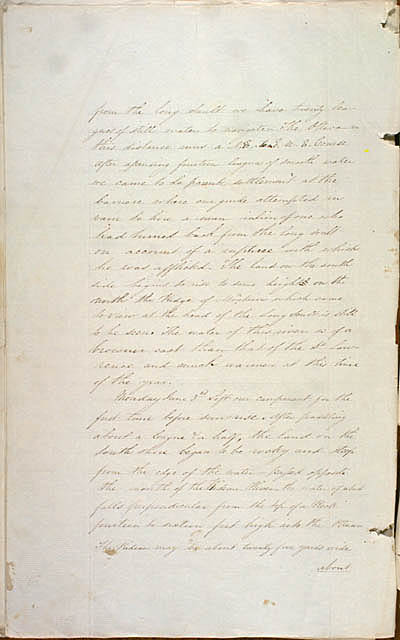 from the long sault we have twenty lea-
gues of still water to navigate. The Ottawa in
this distance runs a N.E. and N. E. Course
After ascending fourteen leagues of smooth water
we came to la settlement at the
where our guide attempted in
vain to hire a man in lieu of one who
had turned back from the long sault
on account of a rupture with which
he was afflicted. The land on the south
side begins to rise to some height & on the
north the Ridge of Mountains which came
to view at the head of the Long Sault is still
to be seen. The water of this river is of a
browner cast than that of the St Law-
rence and much warmer at this time
of the year.
Monday June 3d left our campment for the
first time before sunrise. After paddling
about a league & a half, the land on the
south shore began to be rocky and steep
from the edge of the water. Passed opposite
the mouth of the Rideau River, the water of which
falls perpendicular from the top of a Rock
fourteen to sixteen feet high into the Ottawa
The Rideau may be about twenty five yards wide
about